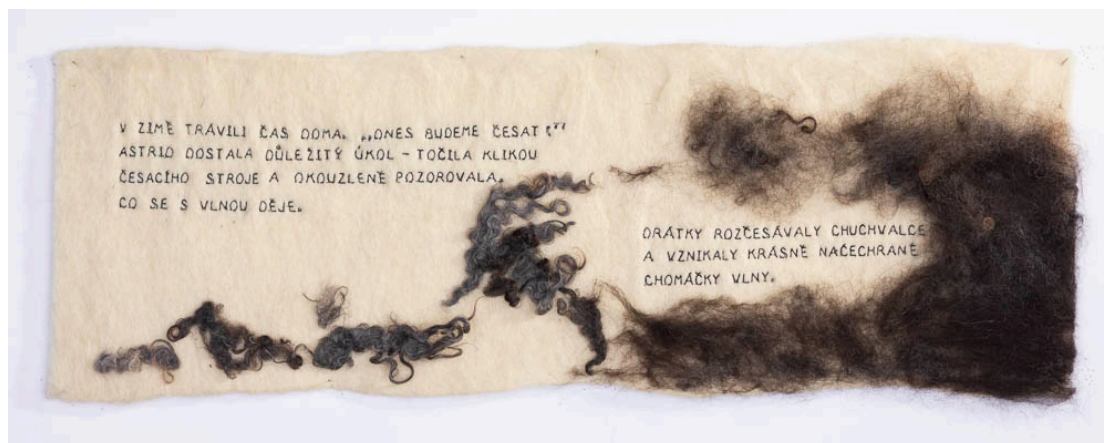 V ZIMĚ TRÁVILI ČAS DOMA. „DNES BUDEME ČESAT!“
ASTRID DOSTALA DŮLEŽITÝ ÚKOL – TOČILA KLIKOU
ČESACÍHO STROJE A OKOUZLENĚ POZOROVALA,
CO SE S VLNOU DĚJE.
DRÁTKY ROZČESÁVALY CHUCHVALCE
A VZNIKALY KRÁSNĚ NAČECHRANÉ
CHOMÁČKY VLNY.